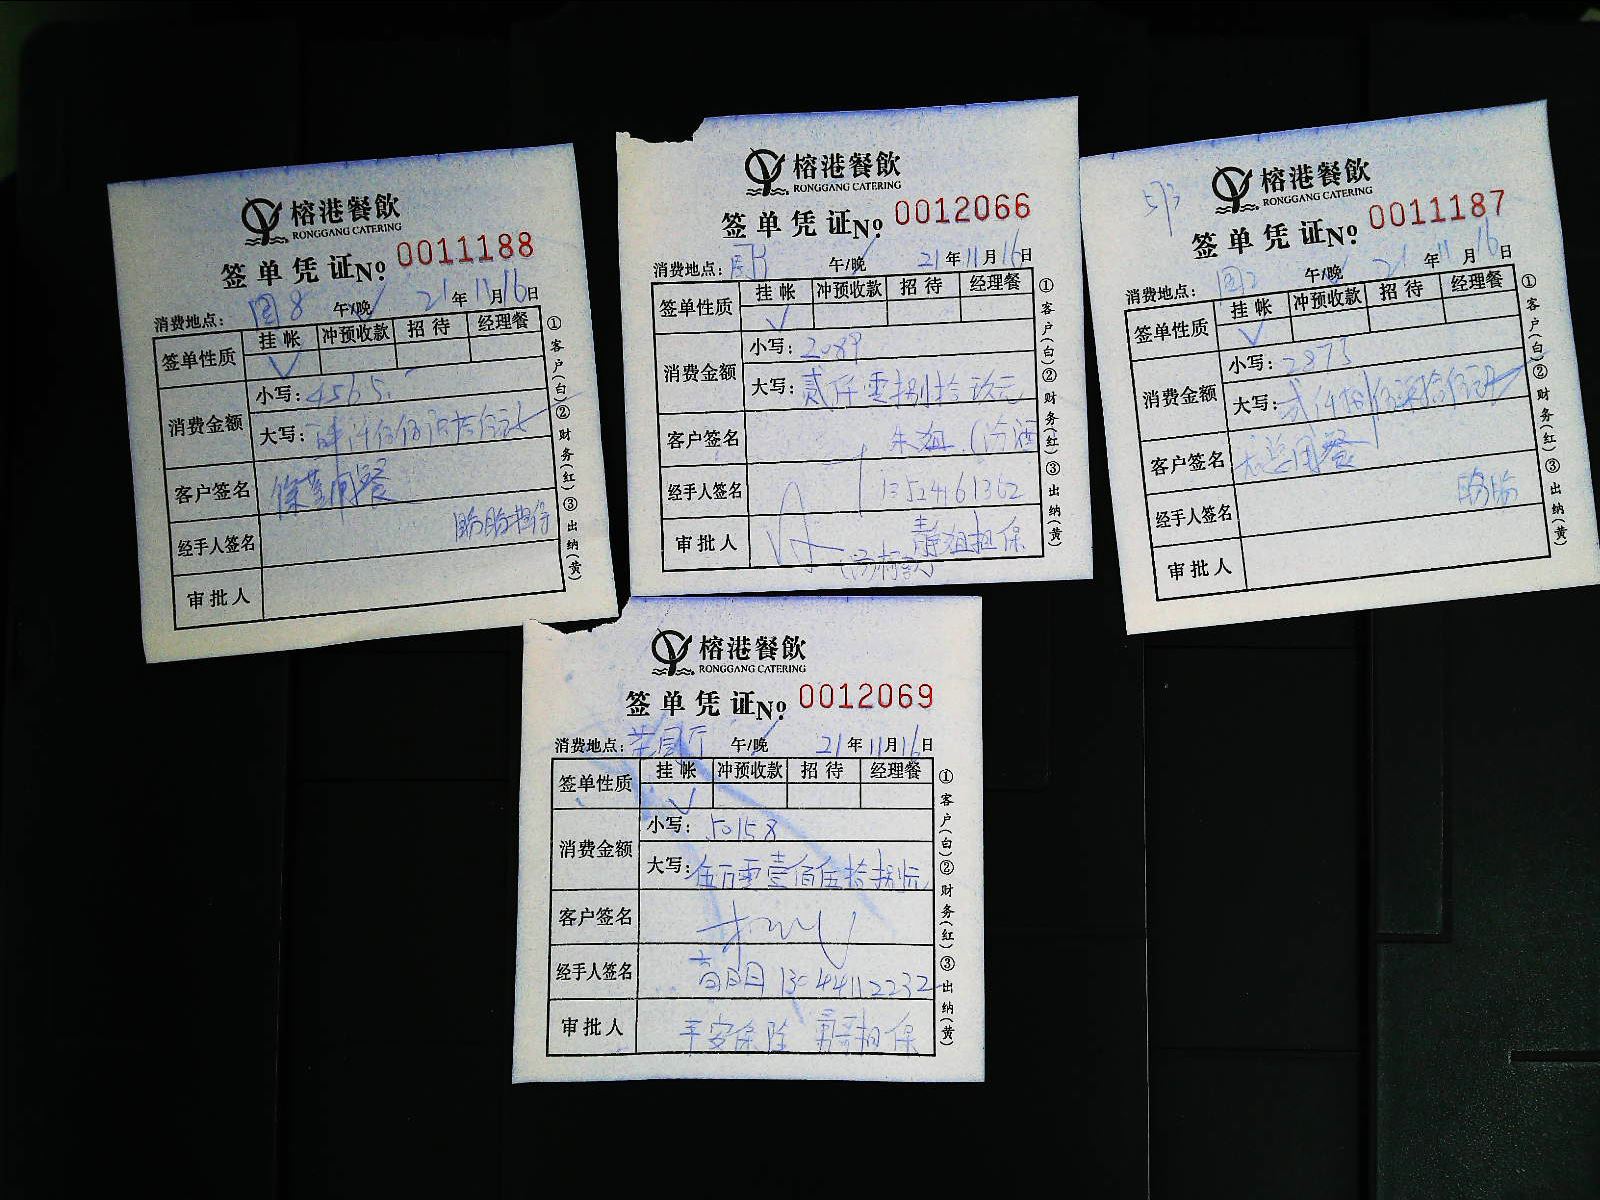 榕港餐飲
RONGGANG CATERING
签单凭证№ 0011188
消费地点: 国8 午/晚 21年11月16日
签单性质 挂帐 冲预收款 招待 经理餐
√
消费金额 小写: 4565.
大写: 肆仟伍佰陆拾伍元
客户签名 用餐
经手人签名 盼盼担保
审批人
①客户(白)②财务(红)③出纳(黄)
榕港餐飲
RONGGANG CATERING
签单凭证№ 0012066
消费地点: 午/晚 21年11月16日
签单性质 挂帐 冲预收款 招待 经理餐
√
消费金额 小写: 2089
大写: 贰仟零捌拾玖元
客户签名 朱姐 (汾酒
经手人签名 13524161362
审批人 静姐担保
①客户(白)②财务(红)③出纳(黄)
榕港餐飲
RONGGANG CATERING
签单凭证№ 0011187
消费地点: 国2 午/晚 21年11月16日
签单性质 挂帐 冲预收款 招待 经理餐
√
消费金额 小写: 2875
大写: 贰仟捌佰柒拾伍元
客户签名 用餐
经手人签名 盼盼
审批人
①客户(白)②财务(红)③出纳(黄)
榕港餐飲
RONGGANG CATERING
签单凭证№ 0012069
消费地点: 午/晚 21年11月16日
签单性质 挂帐 冲预收款 招待 经理餐
√
消费金额 小写: 50158
大写: 伍万零壹佰伍拾捌元
客户签名
经手人签名 13044112232
审批人 平安保险 勇哥担保
①客户(白)②财务(红)③出纳(黄)